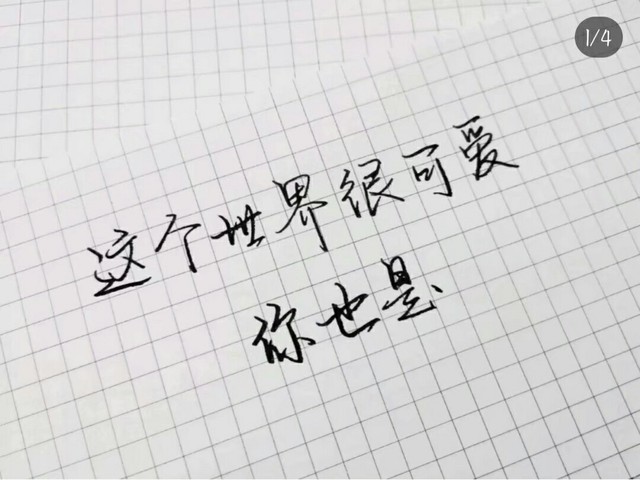 1/4
这个世界很可爱
你也是